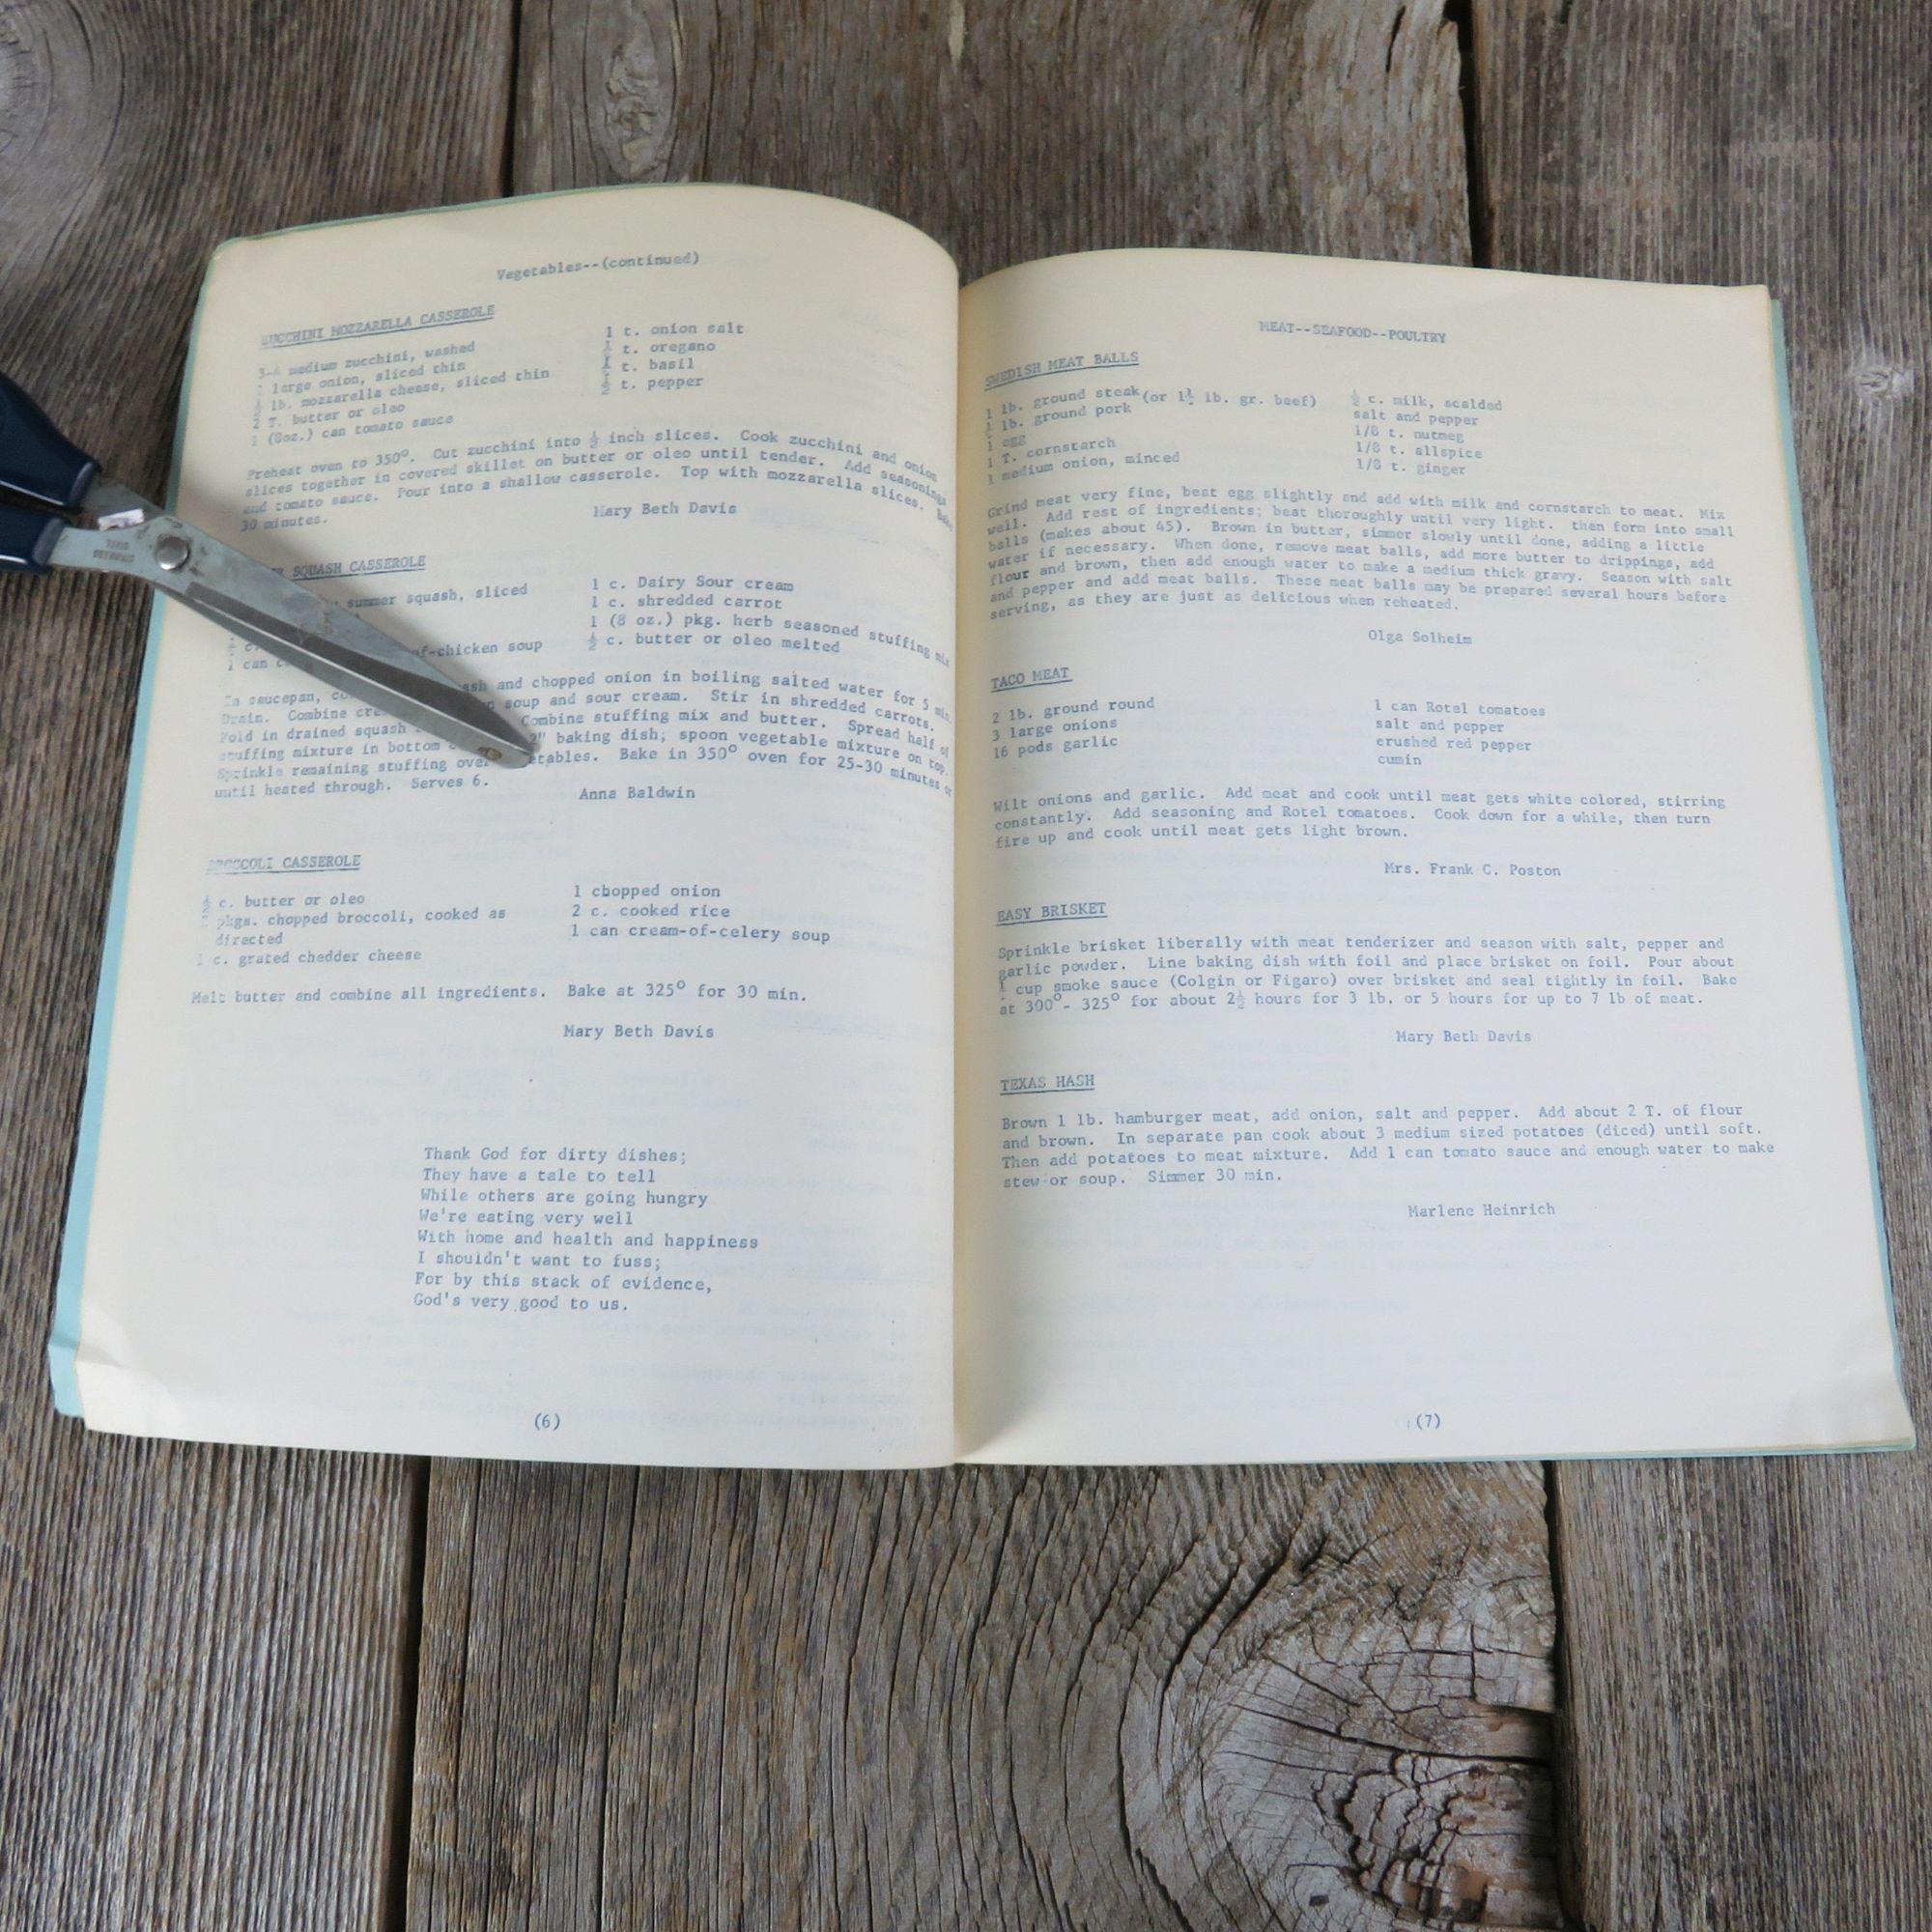 Vegetables--(continued)
ZUCCHINI MOZZARELLA CASSEROLE
medium zucchini, washed
large onion, sliced thin
lb. mozzarella cheese, sliced thin
2 T. butter or oleo
1 (8oz.) can tomato sauce
1 t. onion salt
½ t. oregano
t. basil
½ t. pepper
Preheat oven to 350°. Cut zucchini into ½ inch slices. Cook zucchini and onion
slices together in covered skillet on butter or oleo until tender. Add seasonings
and tomato sauce. Pour into a shallow casserole. Top with mozzarella slices. Bake
30 minutes.
Mary Beth Davis
SQUASH CASSEROLE
summer squash, sliced
1 can
of-chicken soup
1 c. Dairy Sour cream
1 c. shredded carrot
1 (8 oz.) pkg. herb seasoned stuffing mix
½ c. butter or oleo melted
In saucepan, and chopped onion in boiling salted water for 5 min.
Drain. Combine soup and sour cream. Stir in shredded carrots.
Fold in drained squash Combine stuffing mix and butter. Spread half of
stuffing mixture in bottom 2" baking dish; spoon vegetable mixture on top.
Sprinkle remaining stuffing over etables. Bake in 350° oven for 25-30 minutes or
until heated through. Serves 6.
Anna Baldwin
BROCCOLI CASSEROLE
½ c. butter or oleo
pkgs. chopped broccoli, cooked as
directed
1 c. grated chedder cheese
1 chopped onion
2 c. cooked rice
1 can cream-of-celery soup
Melt butter and combine all ingredients. Bake at 325° for 30 min.
Mary Beth Davis
Thank God for dirty dishes;
They have a tale to tell
While others are going hungry
We're eating very well
With home and health and happiness
I shouldn't want to fuss;
For by this stack of evidence,
God's very good to us.
(6)
MEAT--SEAFOOD--POULTRY
SWEDISH MEAT BALLS
1 lb. ground steak (or 1½ lb. gr. beef)
½ lb. ground pork
1 egg
1 T. cornstarch
1 medium onion, minced
½ c. milk, scalded
salt and pepper
1/8 t. nutmeg
1/8 t. allspice
1/8 t. ginger
Grind meat very fine, beat egg slightly and add with milk and cornstarch to meat. Mix
well. Add rest of ingredients; beat thoroughly until very light. then form into small
balls (makes about 45). Brown in butter, simmer slowly until done, adding a little
water if necessary. When done, remove meat balls, add more butter to drippings, add
flour and brown, then add enough water to make a medium thick gravy. Season with salt
and pepper and add meat balls. These meat balls may be prepared several hours before
serving, as they are just as delicious when reheated.
Olga Solheim
TACO MEAT
2 lb. ground round
3 large onions
16 pods garlic
1 can Rotel tomatoes
salt and pepper
crushed red pepper
cumin
Wilt onions and garlic. Add meat and cook until meat gets white colored, stirring
constantly. Add seasoning and Rotel tomatoes. Cook down for a while, then turn
fire up and cook until meat gets light brown.
Mrs. Frank C. Poston
EASY BRISKET
Sprinkle brisket liberally with meat tenderizer and season with salt, pepper and
garlic powder. Line baking dish with foil and place brisket on foil. Pour about
cup smoke sauce (Colgin or Figaro) over brisket and seal tightly in foil. Bake
at 300°- 325° for about 2½ hours for 3 lb. or 5 hours for up to 7 lb of meat.
Mary Beth Davis
TEXAS HASH
Brown 1 lb. hamburger meat, add onion, salt and pepper. Add about 2 T. of flour
and brown. In separate pan cook about 3 medium sized potatoes (diced) until soft.
Then add potatoes to meat mixture. Add 1 can tomato sauce and enough water to make
stew or soup. Simmer 30 min.
Marlene Heinrich
(7)